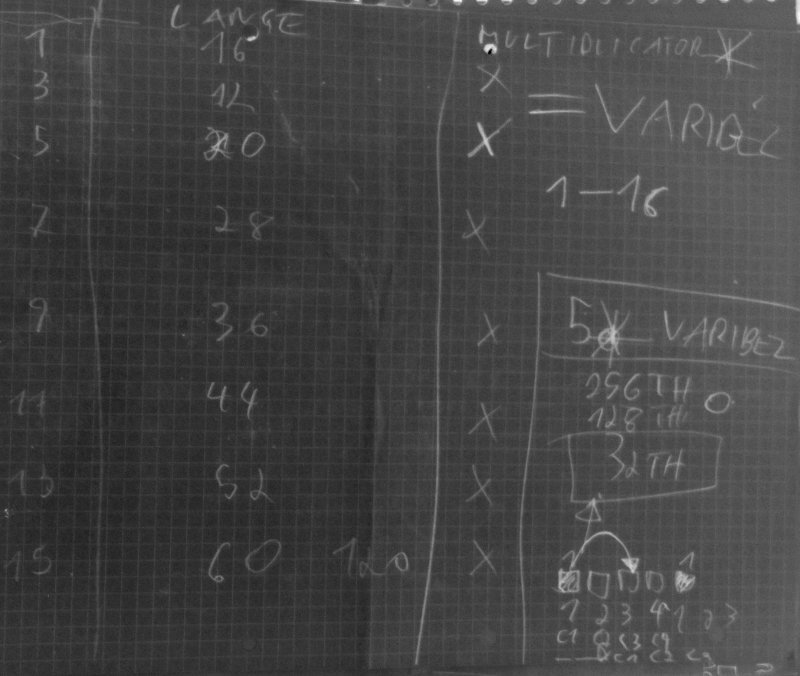 LANGE MULTIDLICATOR *
1 16
3 12 X
= VARIBEL
5 20 X
1 – 16
7 28 X
9 36 X
5 * VARIBEL
256TH
128TH
11 44 X
32TH
13 52 X
15 60 120 X
1 1
1 2 3 4 1 2 3
C1